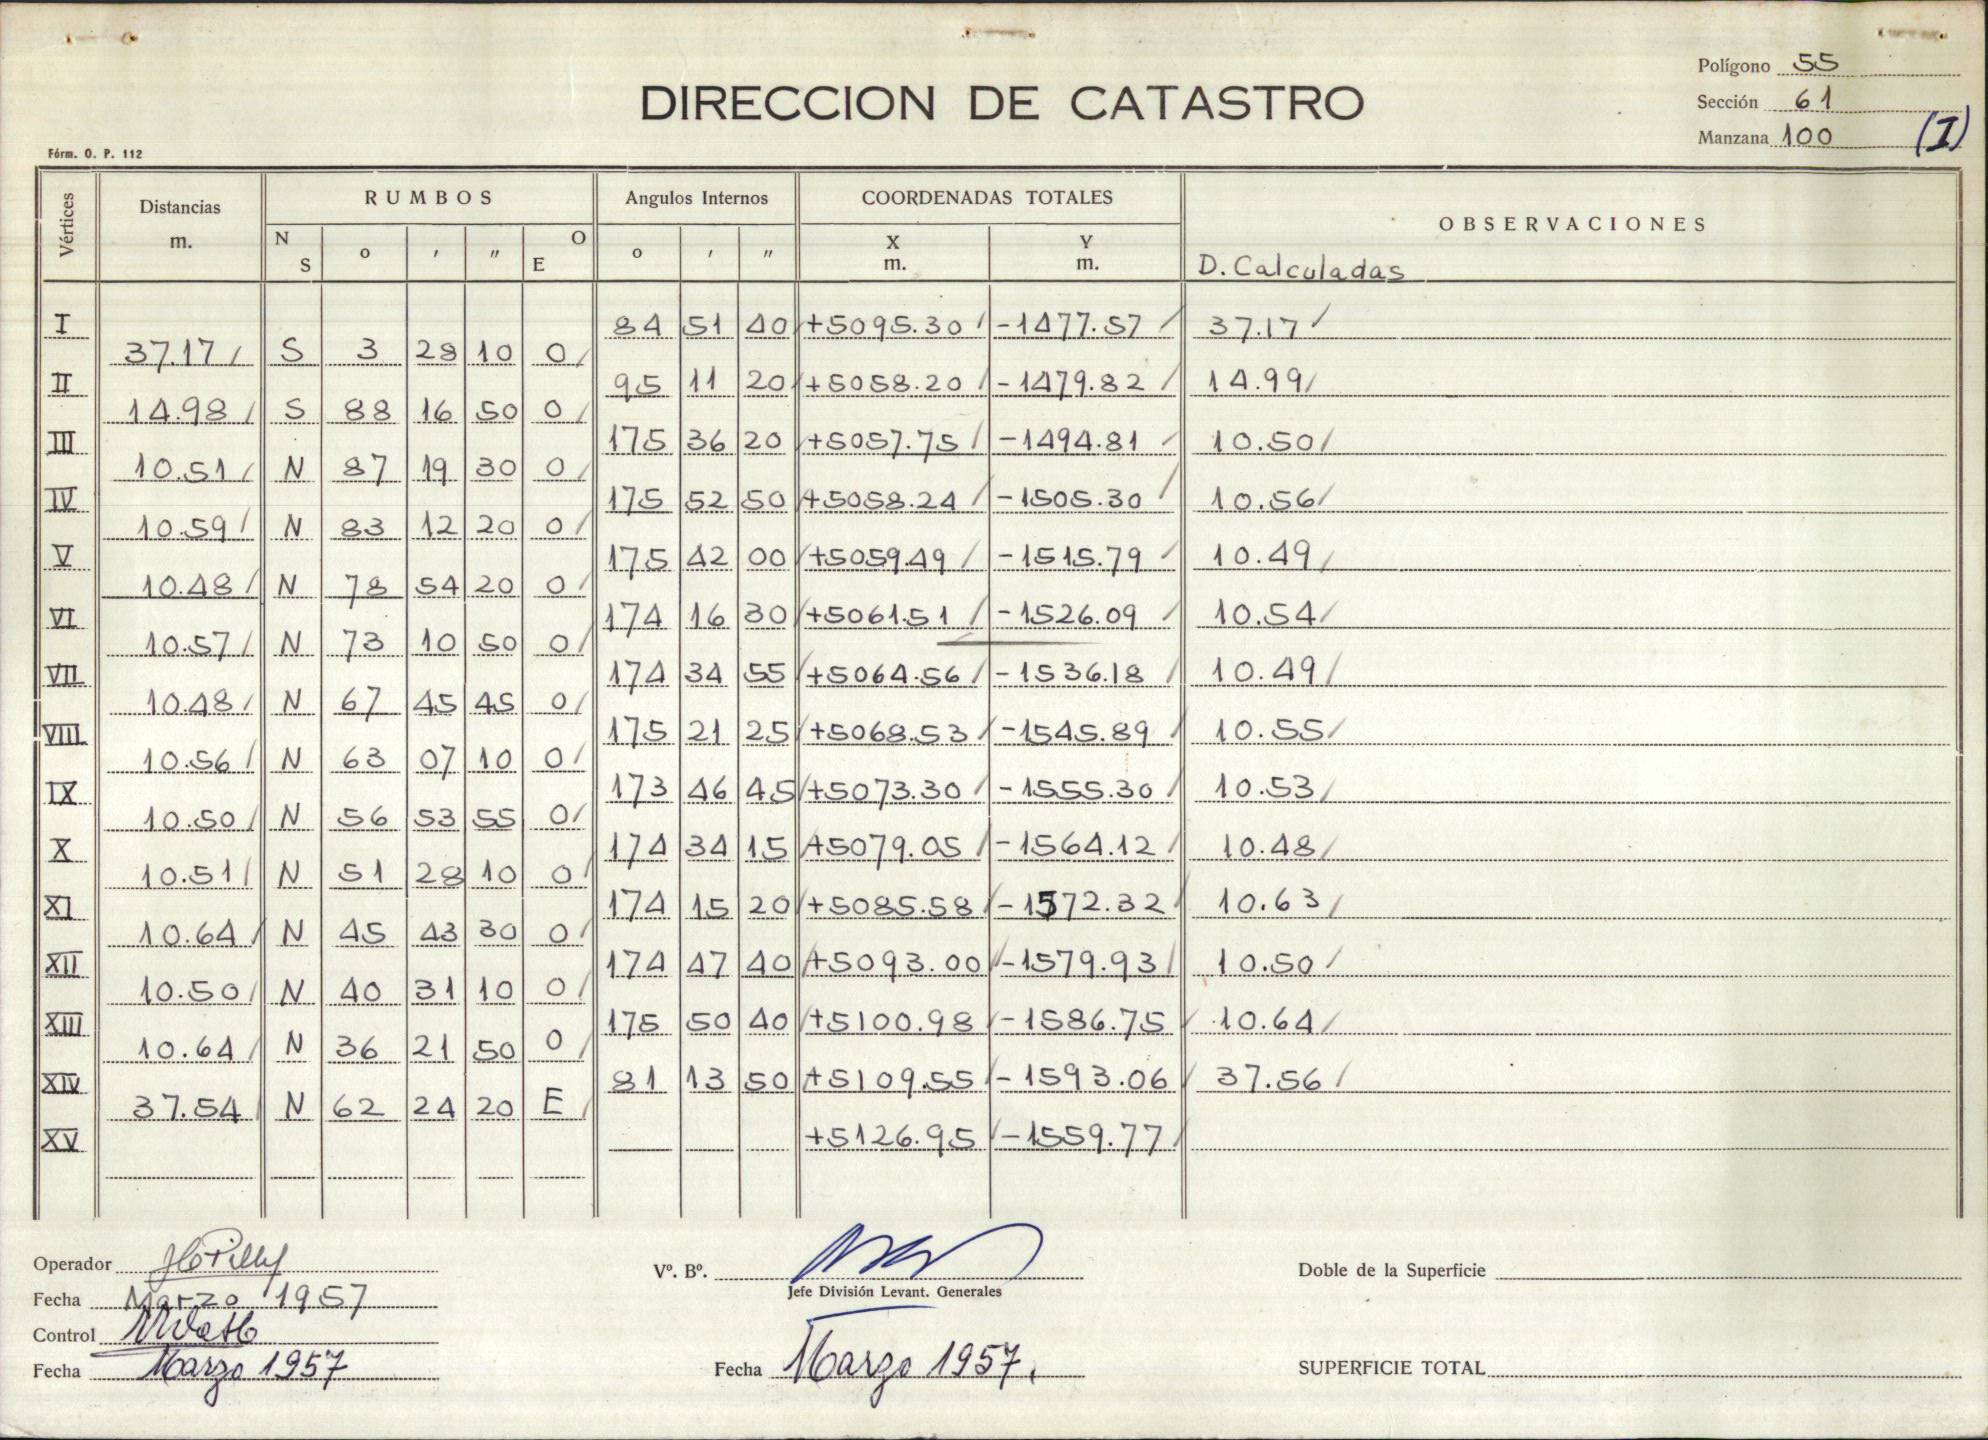 Polígono 55
DIRECCION DE CATASTRO
Sección 61
Manzana 100 (I)
Fórm. O. P. 112
Vértices Distancias m. RUMBOS Angulos Internos COORDENADAS TOTALES OBSERVACIONES
N S o ' " O E o ' " X m. Y m. D. Calculadas
I 84 51 40 +5095.30 -1477.57 37.17
37.17 S 3 28 10 O
II 95 11 20 +5058.20 -1479.82 14.99
14.98 S 88 16 50 O
III 175 36 20 +5057.75 -1494.81 10.50
10.51 N 87 19 30 O
IV 175 52 50 +5058.24 -1505.30 10.56
10.59 N 83 12 20 O
V 175 42 00 +5059.49 -1515.79 10.49
10.48 N 78 54 20 O
VI 174 16 30 +5061.51 -1526.09 10.54
10.57 N 73 10 50 O
VII 174 34 55 +5064.56 -1536.18 10.49
10.48 N 67 45 45 O
VIII 175 21 25 +5068.53 -1545.89 10.55
10.56 N 63 07 10 O
IX 173 46 45 +5073.30 -1555.30 10.53
10.50 N 56 53 55 O
X 174 34 15 +5079.05 -1564.12 10.48
10.51 N 51 28 10 O
XI 174 15 20 +5085.58 -1572.32 10.63
10.64 N 45 43 30 O
XII 174 47 40 +5093.00 -1579.93 10.50
10.50 N 40 31 10 O
XIII 175 50 40 +5100.98 -1586.75 10.64
10.64 N 36 21 50 O
XIV 81 13 50 +5109.55 -1593.06 37.56
37.54 N 62 24 20 E
XV +5126.95 -1559.77
Operador
Vº. Bº.
Doble de la Superficie
Fecha Marzo 1957
Jefe División Levant. Generales
Control
Fecha Marzo 1957
Fecha Marzo 1957.
SUPERFICIE TOTAL